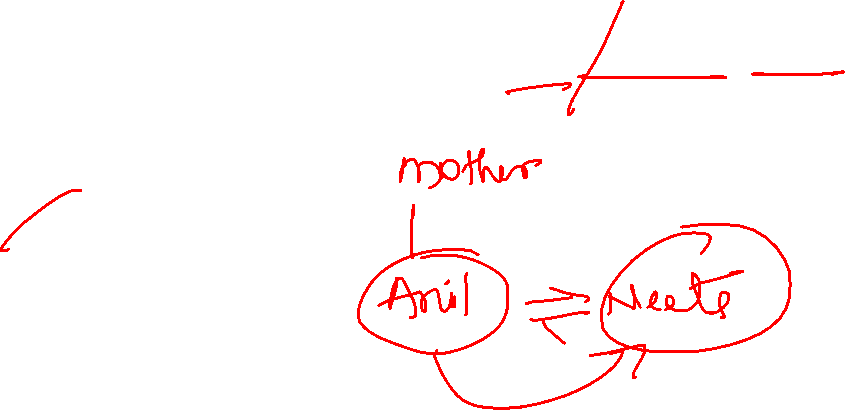 mother
Anil Neeta